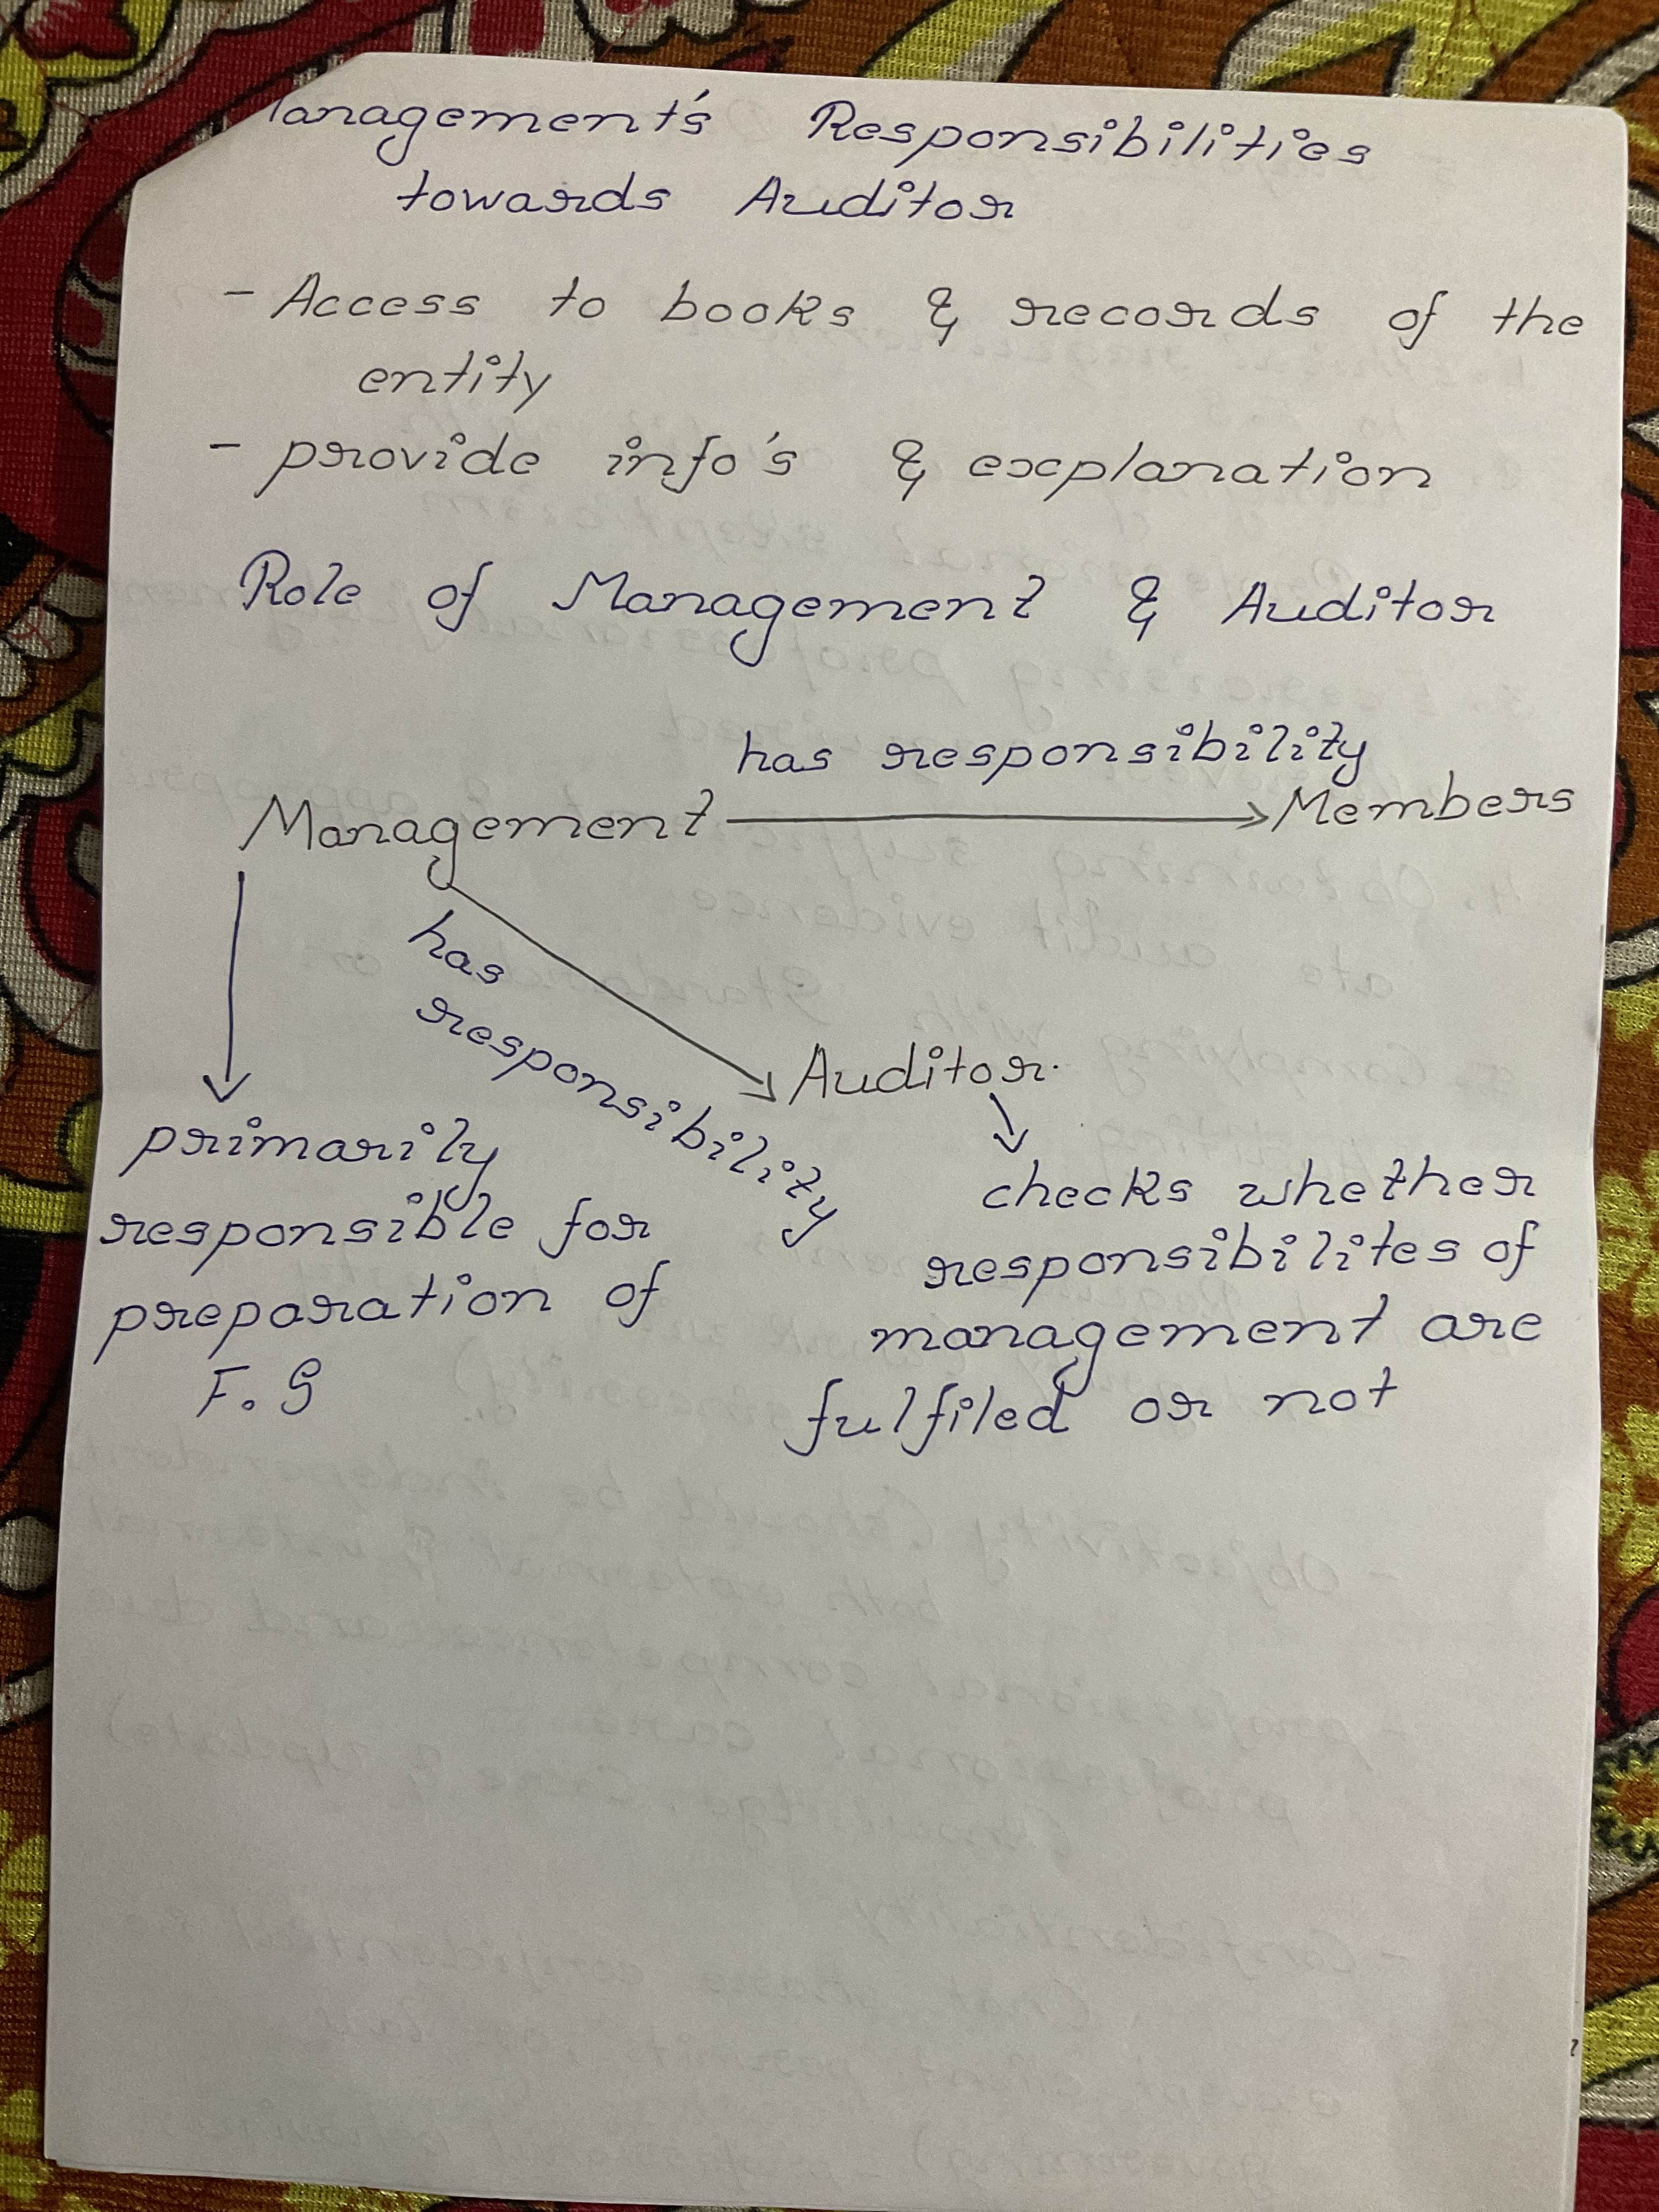 Management's Responsibilities
towards Auditor
- Access to books & records of the
entity
- provide info's & explanation
Role of Management & Auditor
has responsibility
Management → Members
has
responsibility
Auditor.
primarily
responsible for
preparation of
F.S
checks whether
responsibilites of
management are
fulfiled or not